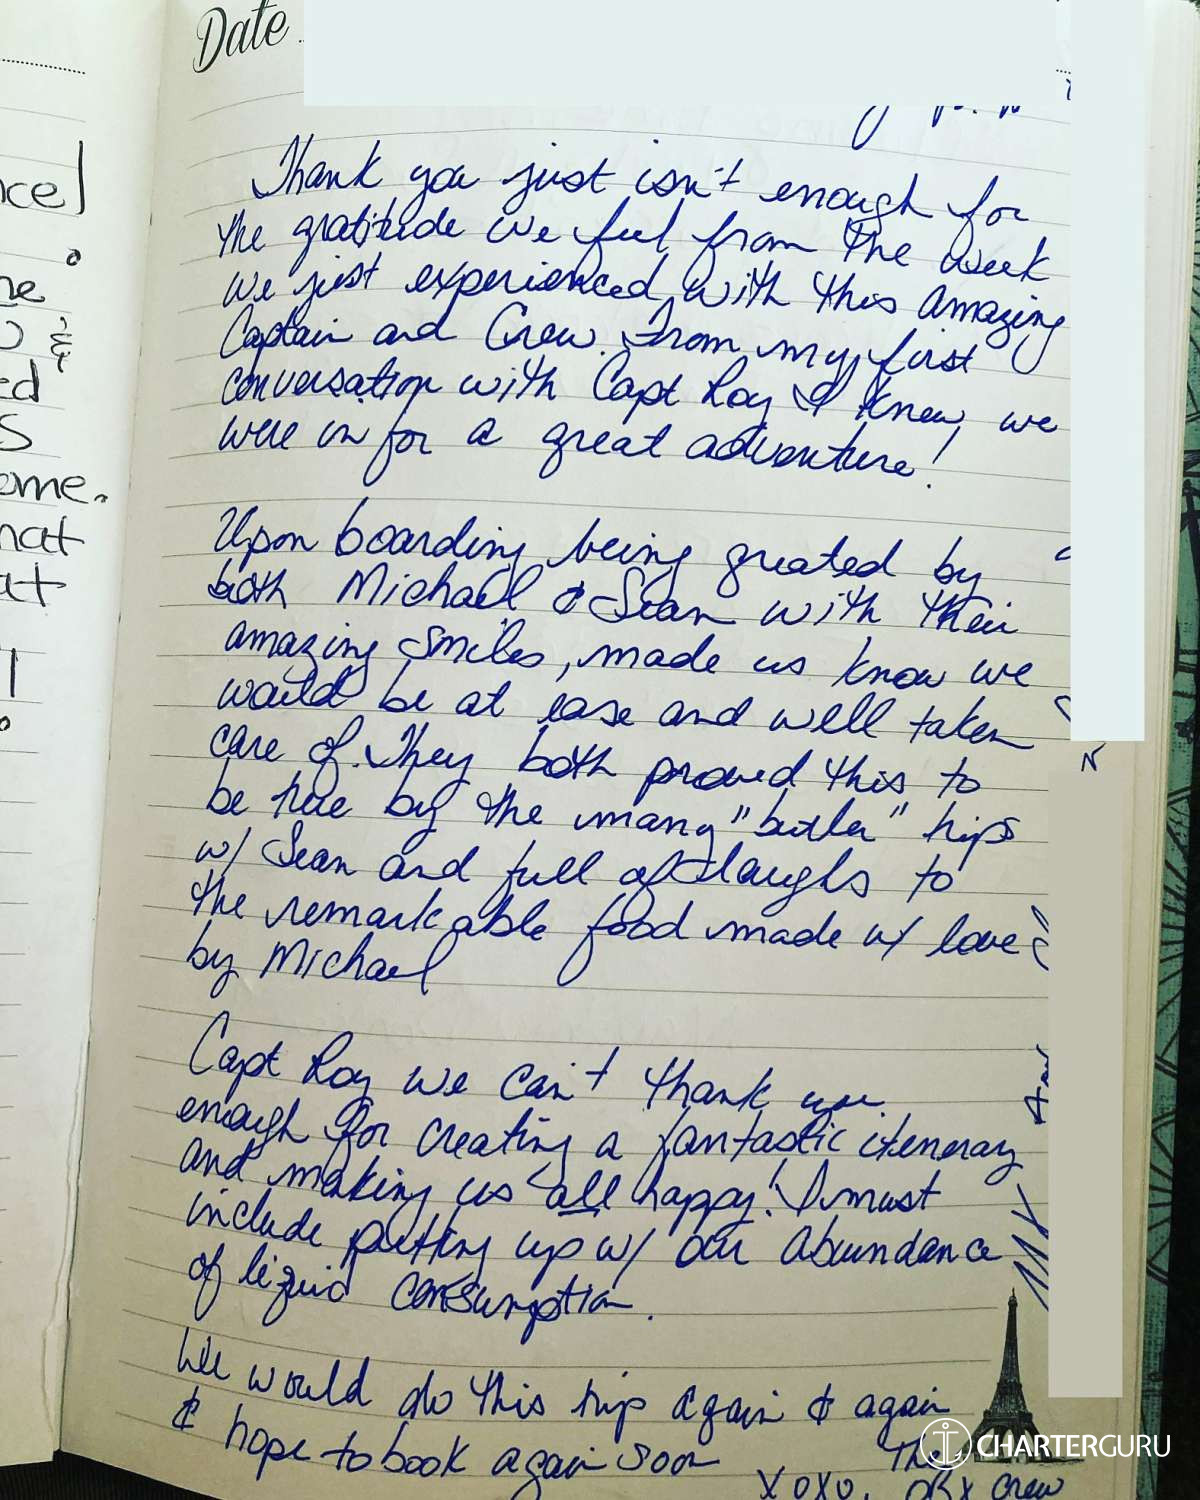 Date
Thank you just isn't enough for
the gratitude we feel from the week
we just experienced with this amazing
Captain and Crew. From my first
conversation with Capt Roy I knew we
were in for a great adventure!
Upon boarding being greated by
both Michael & Sean with their
amazing smiles, made us know we
would be at ease and well taken
care of. They both proved this to
be true by the many "butler" trips
w/ Sean and full of laughs to
the remarkable food made w/ love
by Michael
Capt Roy we can't thank you
enough for creating a fantastic itenerary
and making us all happy! I must
include putting up w/ our abundance
of liquid consumption.
We would do this trip again & again
& hope to book again soon
The
xoxo, OBX Crew
CHARTERGURU